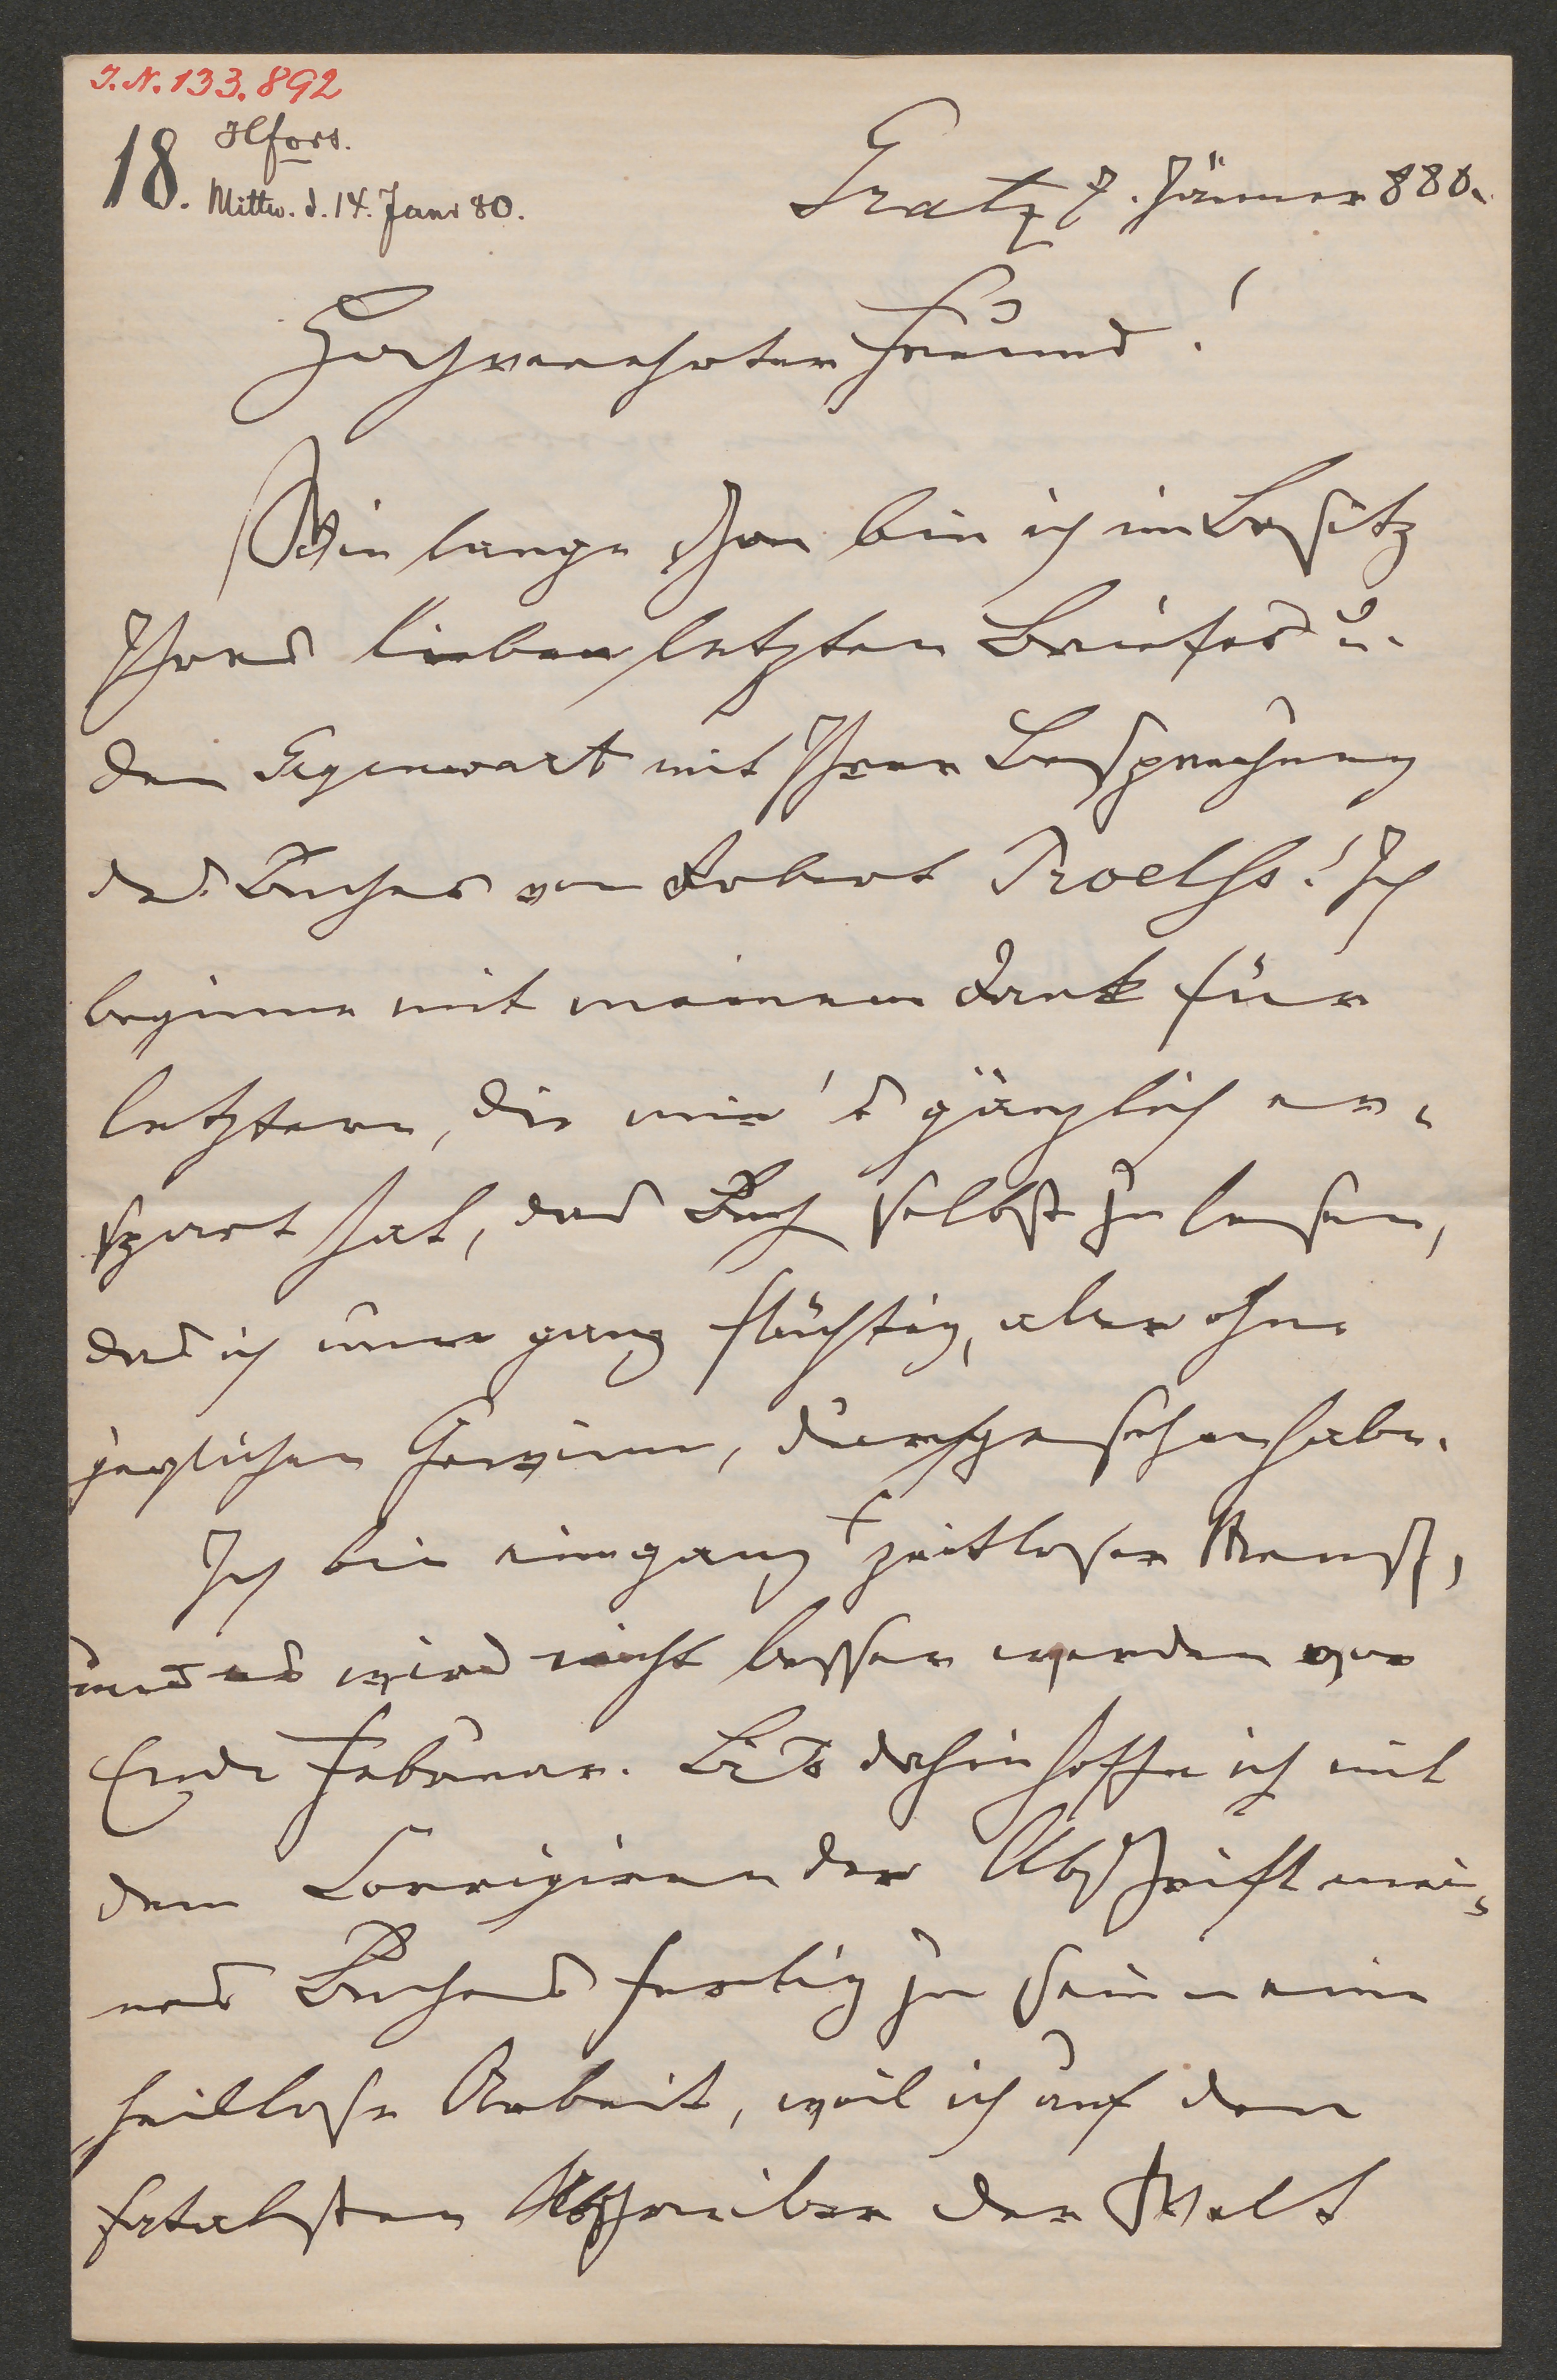 J.N. 133.892
18. Hlfors.
Mittw. d. 14. Janr 80.
Gratz 7. Jänner 880.
Hochverehrter Freund!
Wie lange schon bin ich im Besitz
Ihres lieben letzten Briefes u.
der Gegenwart mit Ihrer Besprechung
des Buches von Robert Proelss! Ich
beginne mit meinem Dank für
letztere, die mir's gänzlich er-
spart hat, das Buch selbst zu lesen,
das ich nur ganz flüchtig, aber ohne
jeglichen Gewinn, durchgesehen habe.
Ich bin ein ganz zeitloser Mensch,
und es wird nicht besser werden vor
Ende Februar. Bis dahin hoffe ich mit
dem Corrigiren der Abschrift mei-
nes Buches fertig zu sein – eine
heillose Arbeit, weil ich auf den
fatalsten Abschreiber der Welt